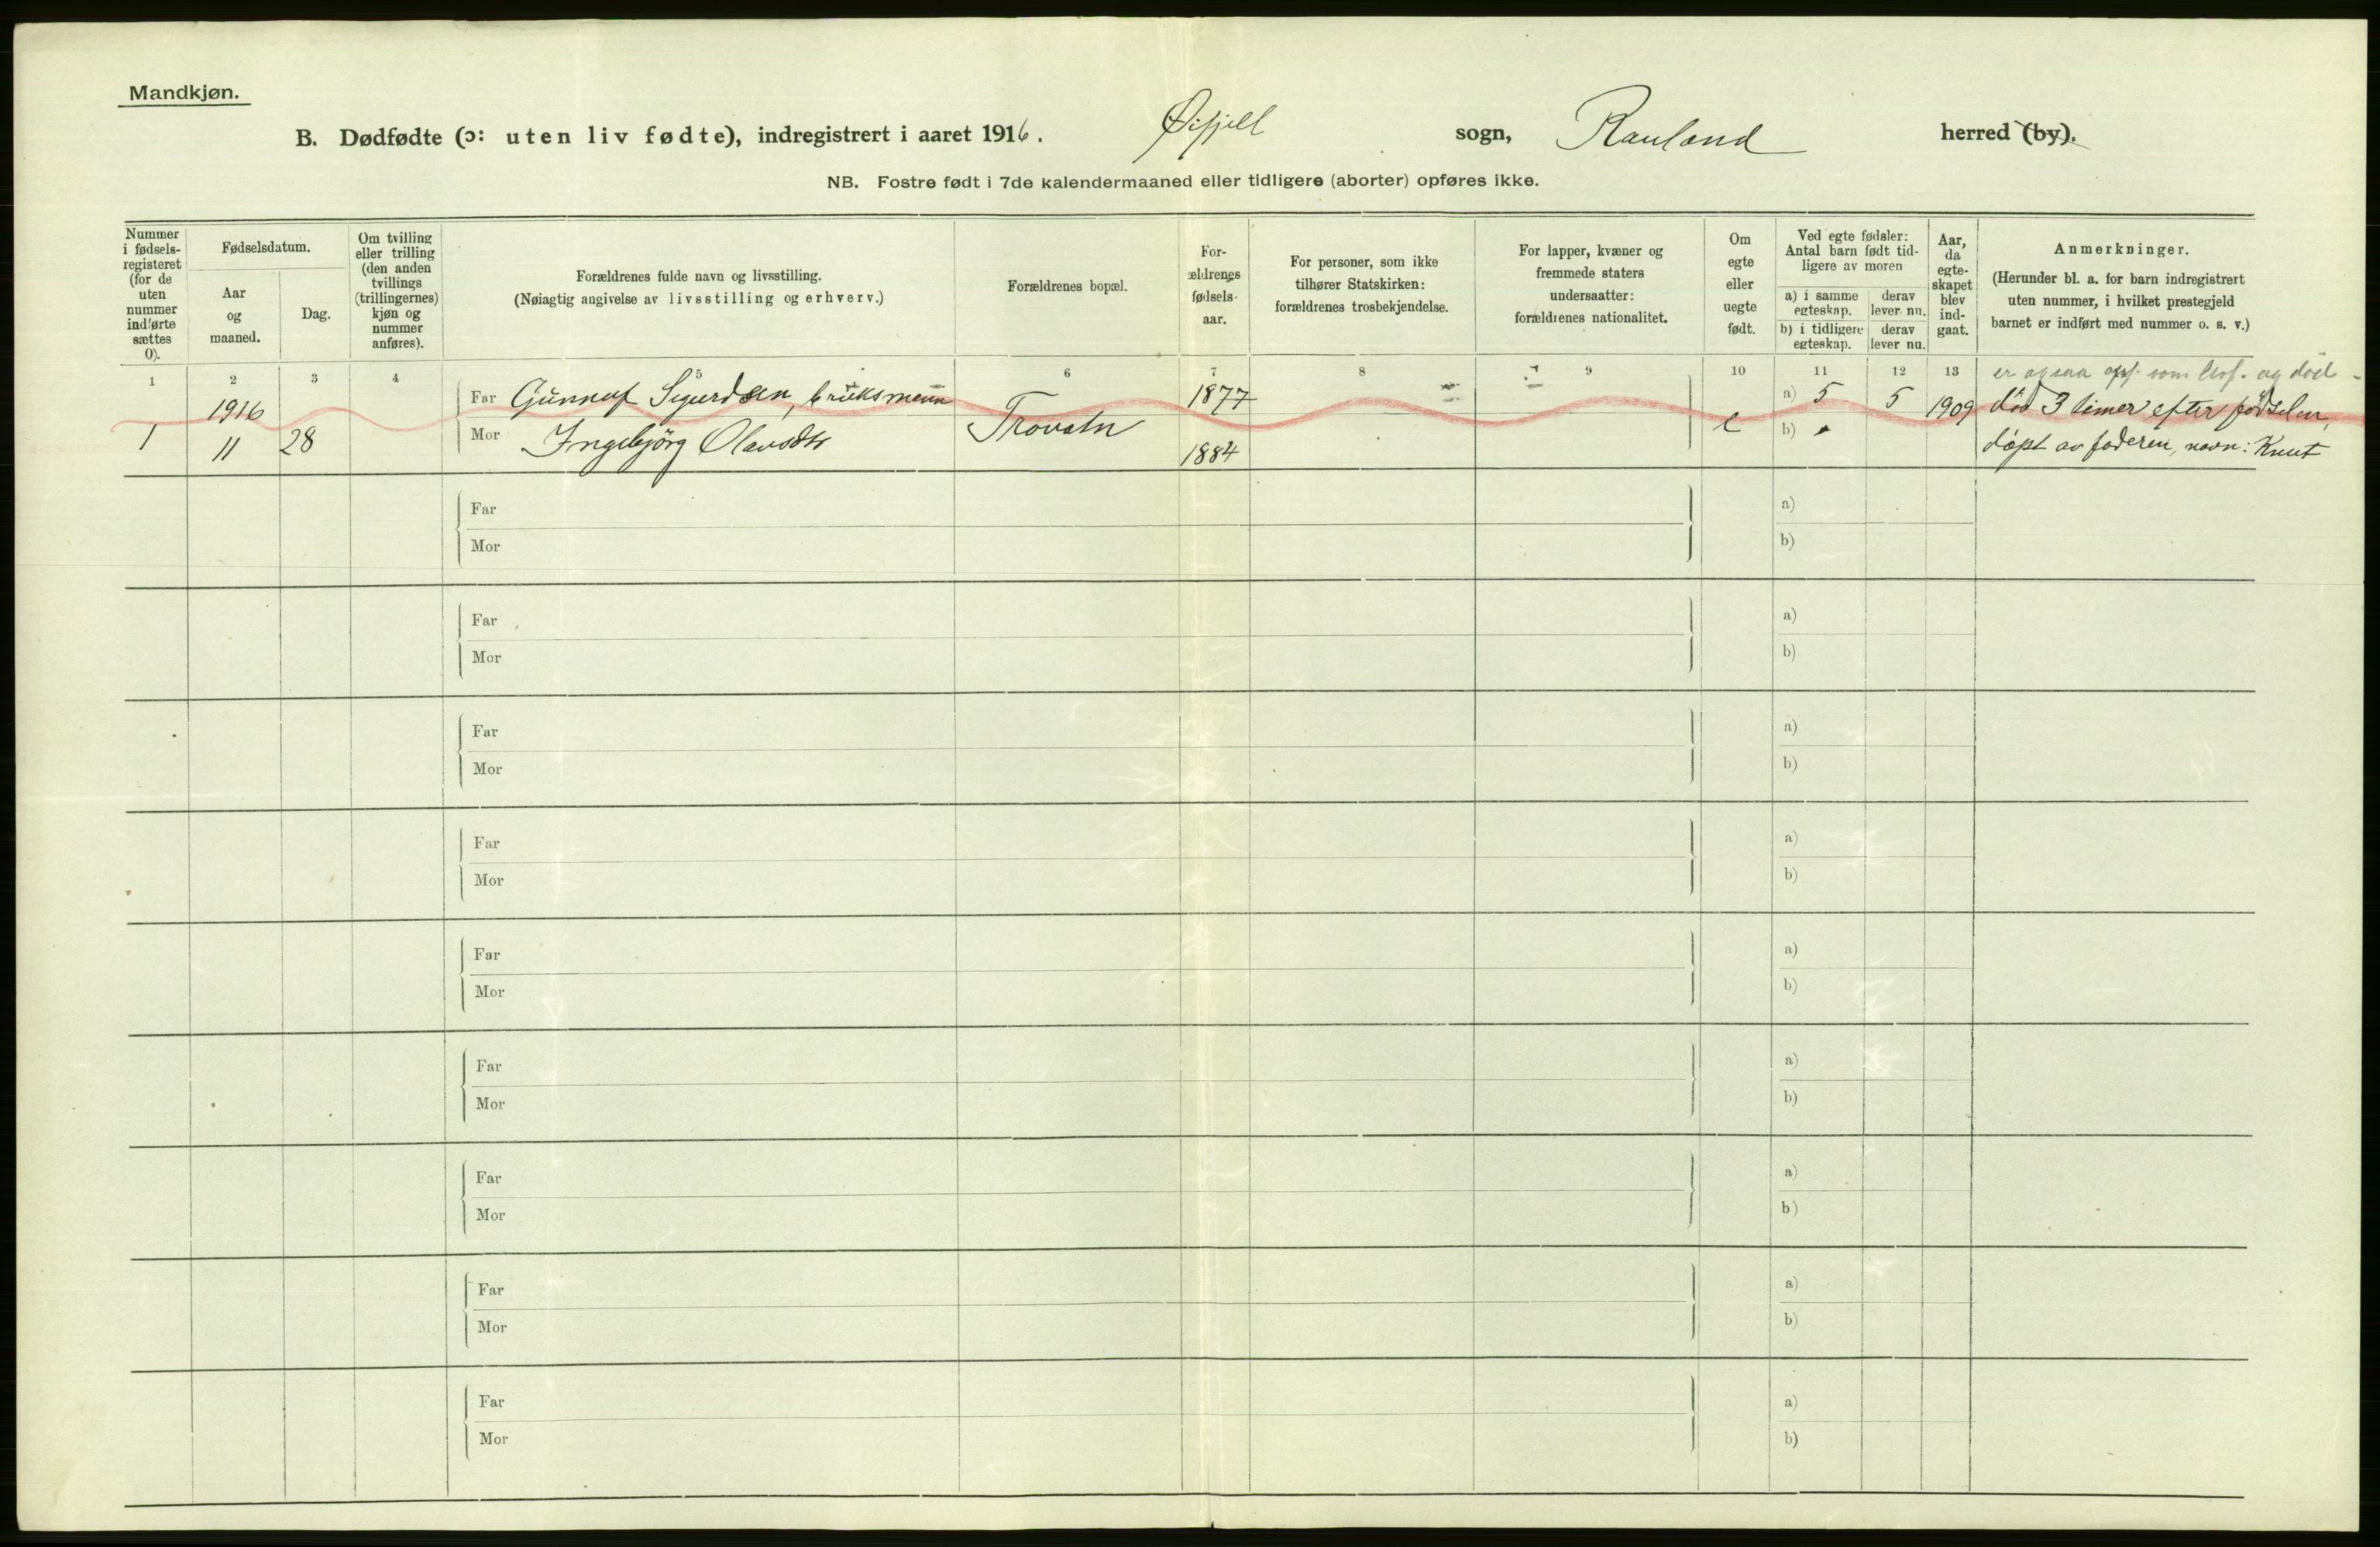 Mandkjøn.
B. Dødfødte (ɔ: uten liv fødte), indregistrert i aaret 1916. Øifjell sogn, Rauland herred (by).
NB. Fostre født i 7de kalendermaaned eller tidligere (aborter) opføres ikke.
Nummer i fødsels-registeret (for de uten nummer indførte sættes 0).
Fødselsdatum.
Aar og maaned.
Dag.
Om tvilling eller trilling (den anden tvillings (trillingernes) kjøn og nummer anføres).
Forældrenes fulde navn og livsstilling.
(Nøiagtig angivelse av livsstilling og erhverv.)
Forældrenes bopæl.
For-ældrenes fødsels-aar.
For personer, som ikke tilhører Statskirken: forældrenes trosbekjendelse.
For lapper, kvæner og fremmede staters undersaatter: forældrenes nationalitet.
Om egte eller uegte født.
Ved egte fødsler: Antal barn født tid-ligere av moren
a) i samme egteskap.
derav lever nu.
b) i tidligere egteskap.
derav lever nu.
Aar, da egte-skapet blev ind-gaat.
Anmerkninger.
(Herunder bl. a. for barn indregistrert uten nummer, i hvilket prestegjeld barnet er indført med nummer o. s. v.)
1 2 3 4 5 6 7 8 9 10 11 12 13
er ogsaa opf. som levf. og död
1916 Far Gunnuf Sigurdsen, bruksmann 1877 a) 5 5 1909 död 3 timer efter födselen,
1 11 28 Mor Ingebjörg Olavsdtr Trovatn 1884 e b) döpt av faderen, navn: Knut
Far a)
Mor b)
Far a)
Mor b)
Far a)
Mor b)
Far a)
Mor b)
Far a)
Mor b)
Far a)
Mor b)
Far a)
Mor b)
Far a)
Mor b)
Far a)
Mor b)